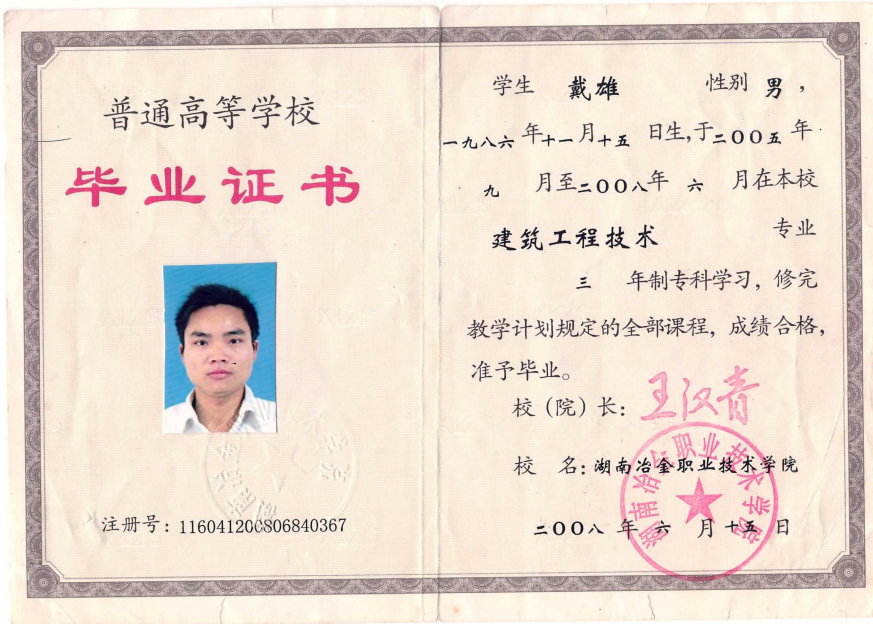 普通高等学校
毕业证书
注册号：116041200806840367
学生 戴雄 性别 男，
一九八六年十一月十五日生,于二〇〇五年
九月至二〇〇八年六月在本校
建筑工程技术 专业
三年制专科学习，修完
教学计划规定的全部课程，成绩合格，
准予毕业。
校（院）长：王汉青
校 名：湖南冶金职业技术学院
二〇〇八年六月十五日
湖南冶金职业技术学院